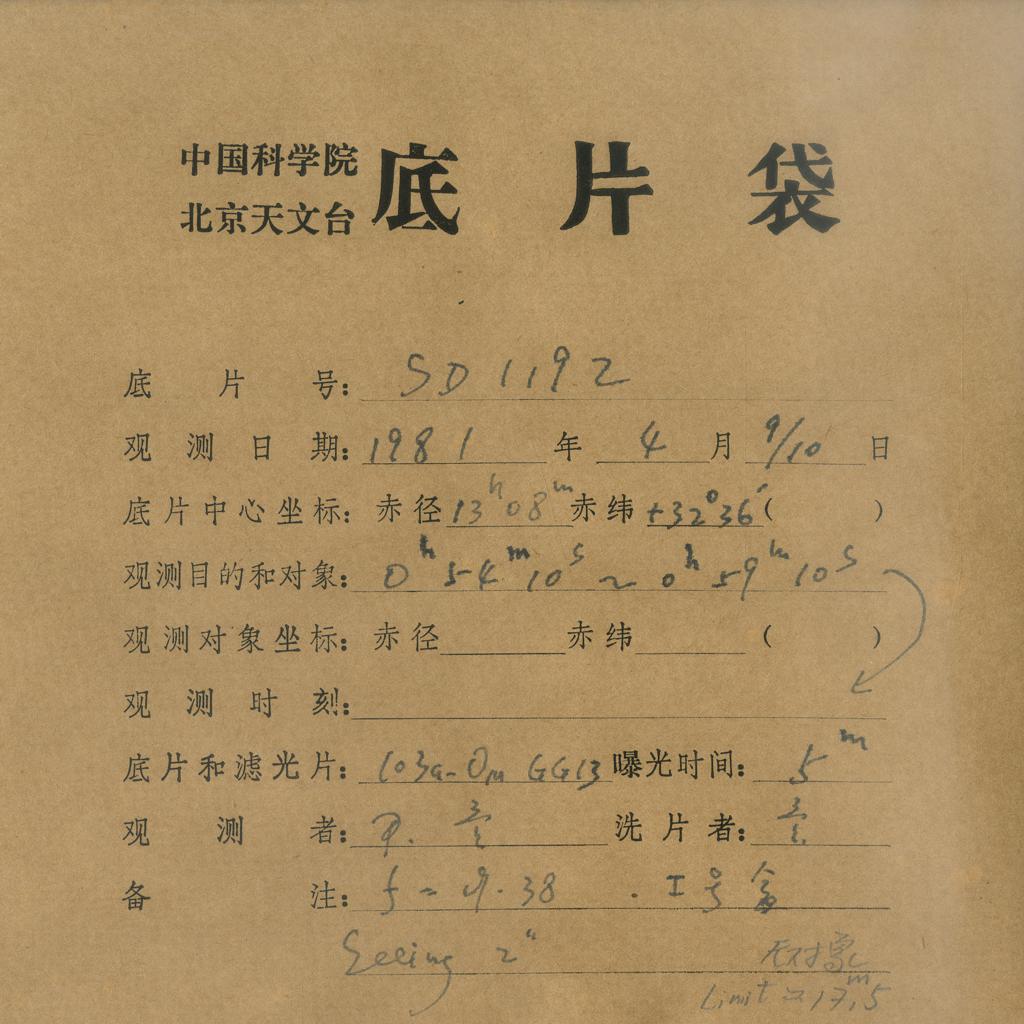 中国科学院
北京天文台
底片袋
底片号: SD 1192
观测日期: 1981年 4月 9/10日
底片中心坐标: 赤径 13ʰ08ᵐ 赤纬 +32°36′( )
观测目的和对象: 0ʰ54ᵐ10ˢ ~ 0ʰ59ᵐ10ˢ
观测对象坐标: 赤径 赤纬 ( )
观测时刻:
底片和滤光片: 103a-O GG13 曝光时间: 5ᵐ
观测者: 洗片者:
备注: 38 . I号盒
Seeing 2"
无对象
Limit ≈ 17ᵐ.5